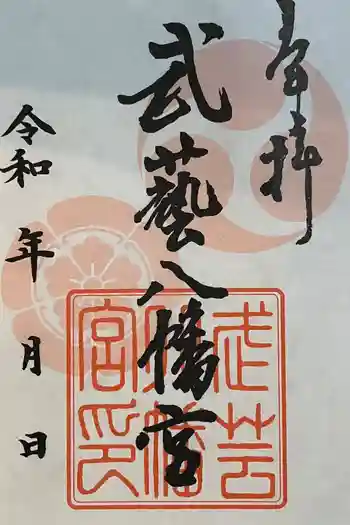 奉拝
武藝八幡宮
武芸八幡宮印
令和 年 月 日